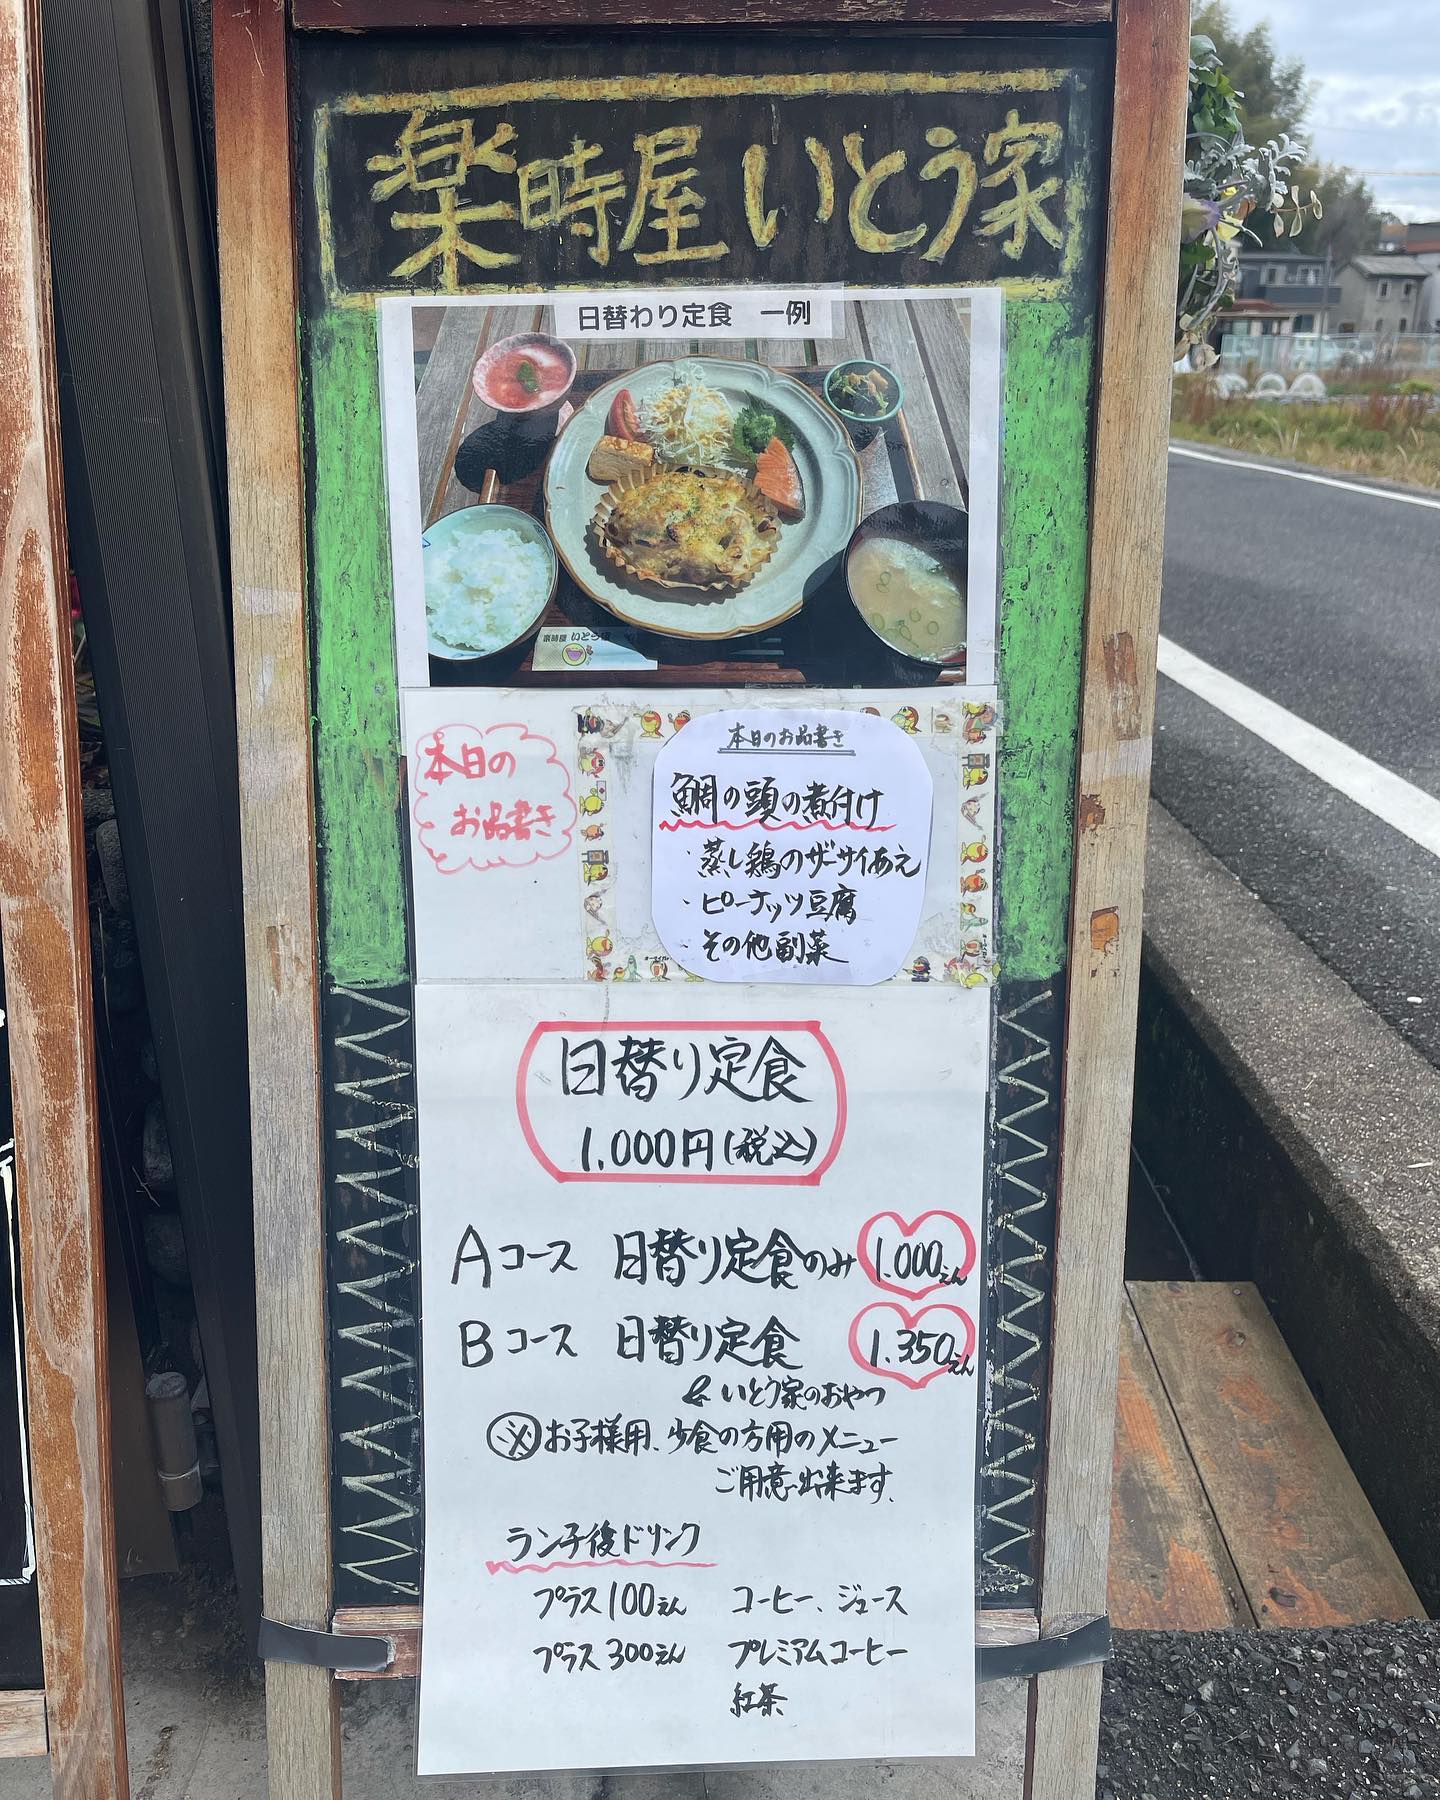 楽時屋 いとう家
日替わり定食 一例
楽時屋 いとう家
本日の
お品書き
本日のお品書き
鯛の頭の煮付け
・蒸し鶏のザーサイあえ
・ピーナッツ豆腐
・その他副菜
日替り定食
1.000円(税込)
Aコース 日替り定食のみ 1.000えん
Bコース 日替り定食 1.350えん
& いとう家のおやつ
※お子様用、少食の方用のメニュー
ご用意出来ます。
ランチ後ドリンク
プラス100えん コーヒー、ジュース
プラス300えん プレミアムコーヒー
紅茶